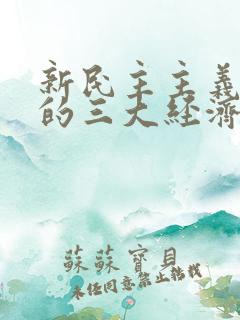 新民主主義
的三大經濟
蘇蘇寶貝
未經同意禁止轉載